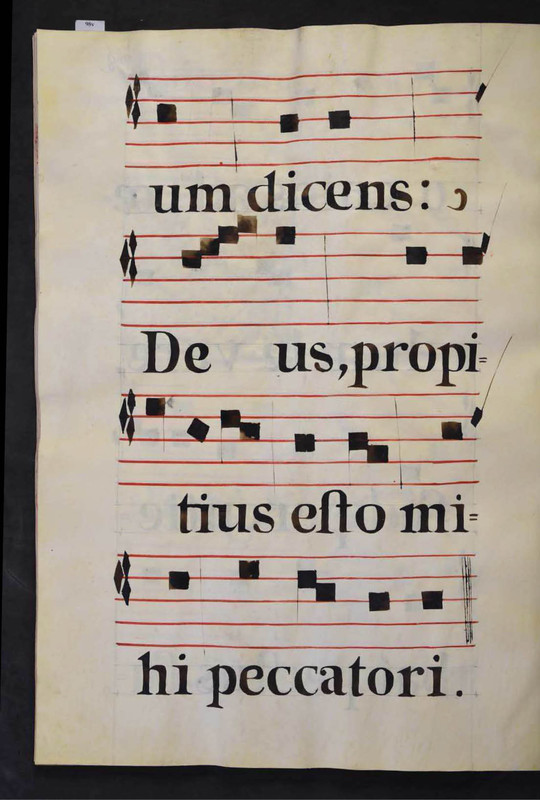 um dicens:
De us, propi=
tius eſto mi=
hi peccatori.